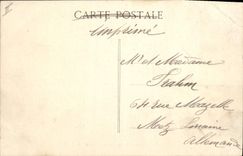 CARTE POSTALE
Imprimé
Mr et Madame
Frahm
64 rue Mazelle
Metz Lorraine
Allemande